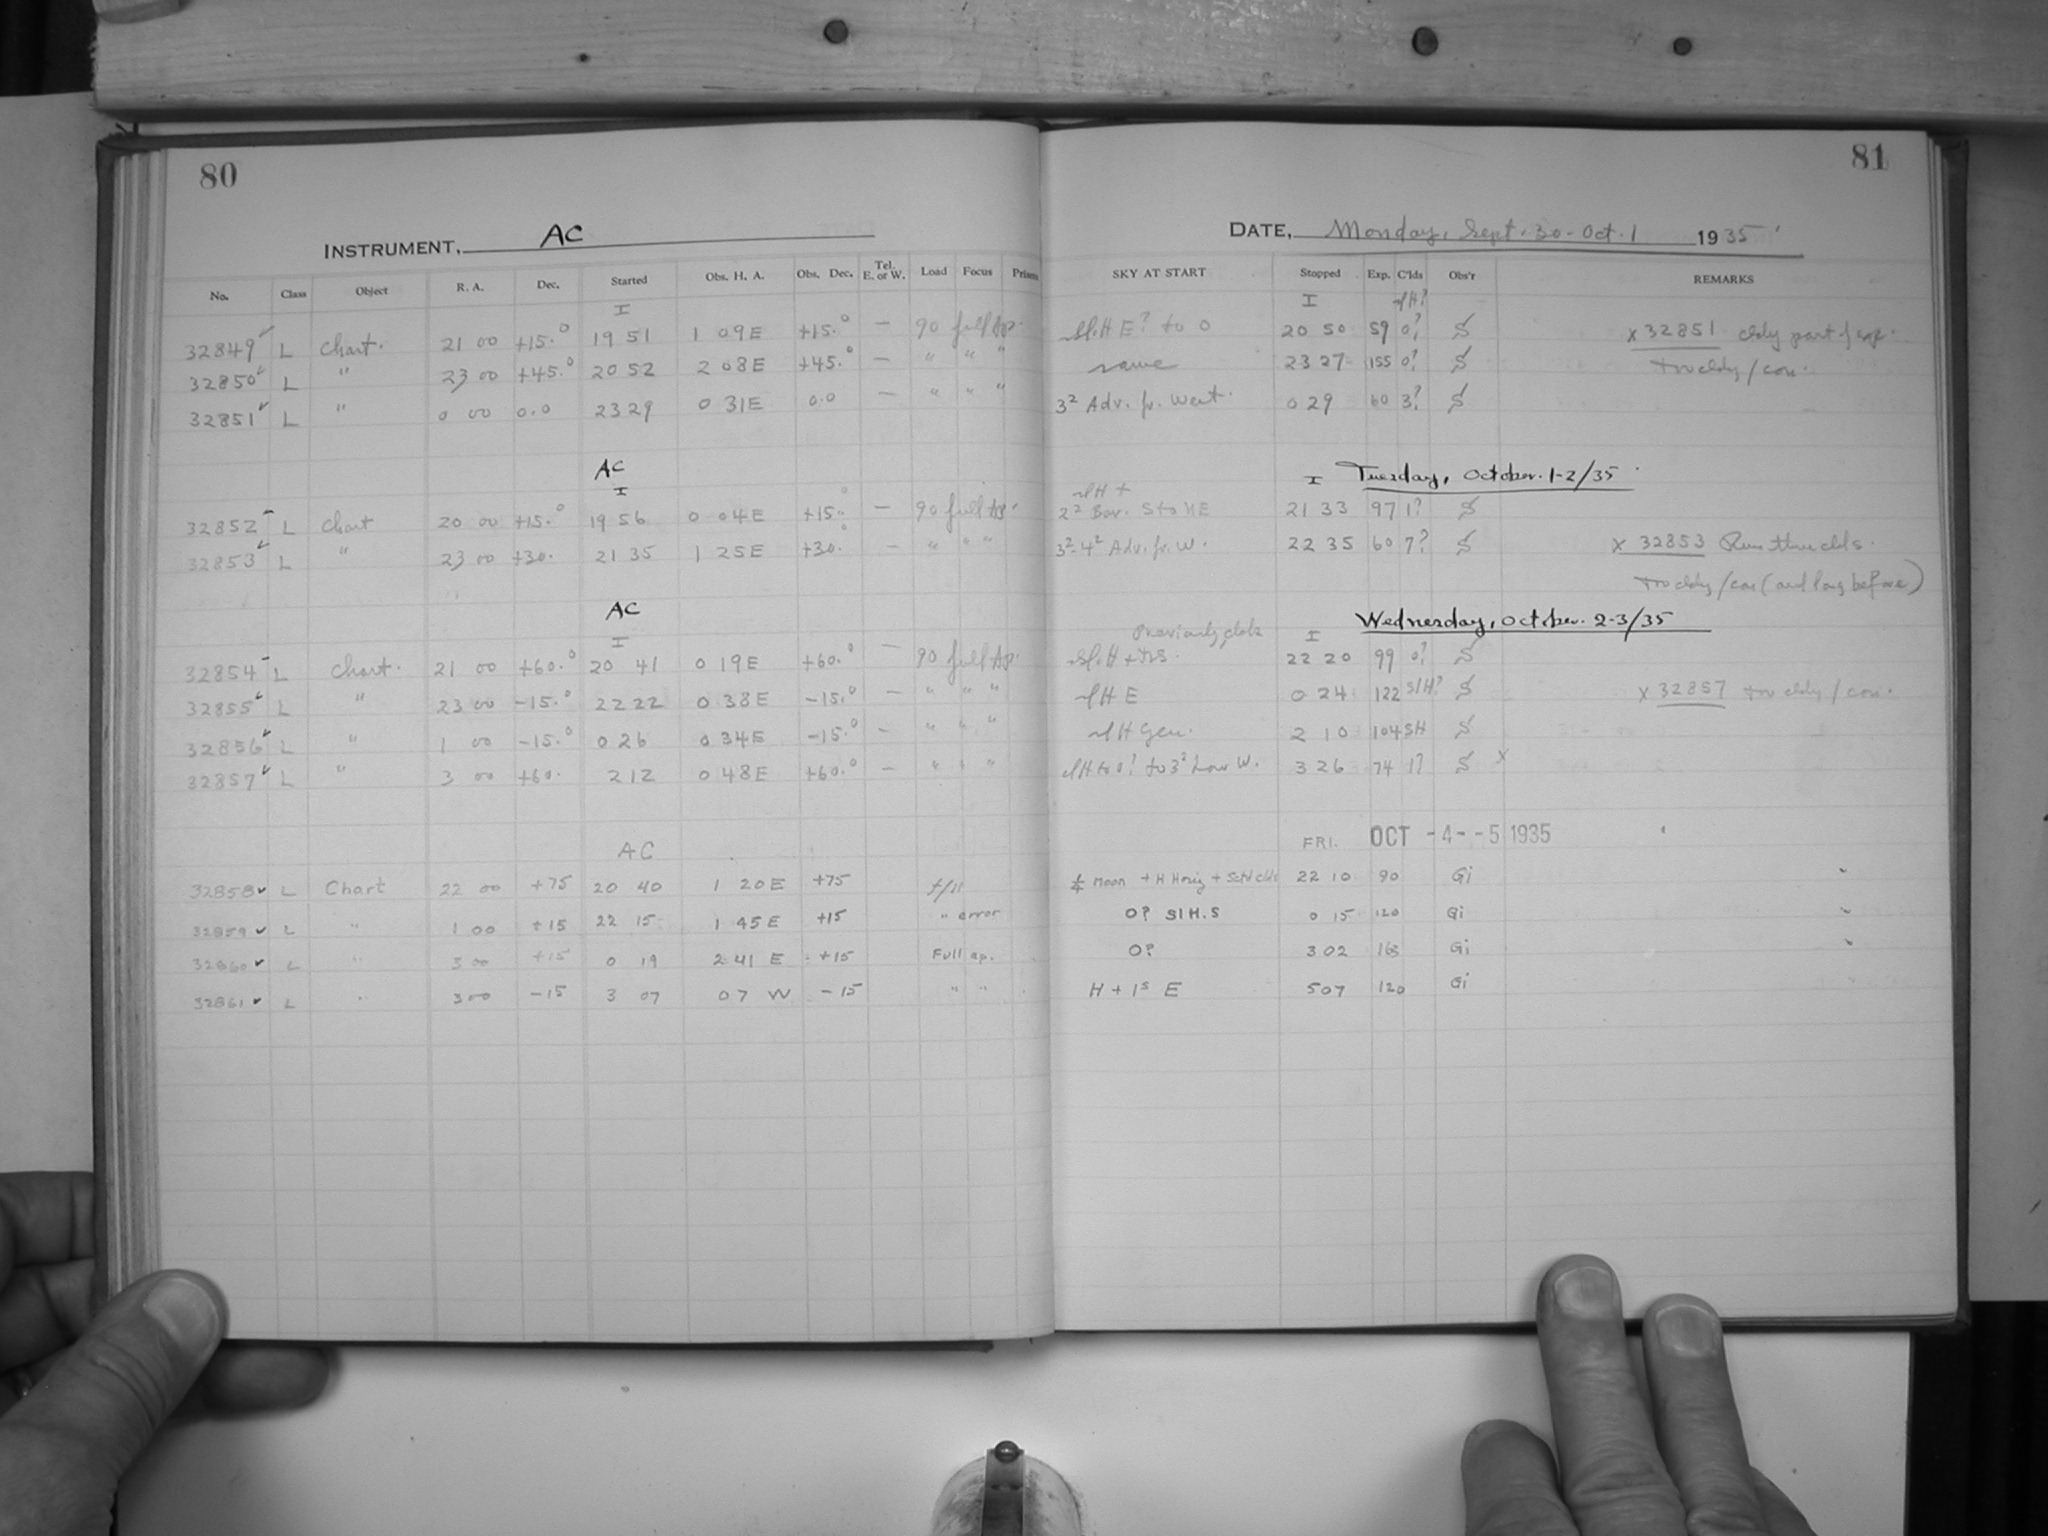 80
81
INSTRUMENT, AC
DATE, Monday, Sept. 30 - Oct. 1 1935
No. Class Object R. A. Dec. Started Obs. H. A. Obs. Dec. Tel. E. or W. Load Focus Prism SKY AT START Stopped Exp. C'lds Obs'r REMARKS
I I slH?
32849 L Chart. 21 00 +15.° 19 51 1 09E +15.° — 90 full Ap. Sl.H E? to 0 20 50 59 0? S x 32851 cldy part of exp.
32850 L " 23 00 +45.° 20 52 2 08E +45.° — " " " same 23 27 155 0? S cldy / con.
32851 L " 0 00 0.0 23 29 0 31E 0.0 — " " " 3² Adv. fr. West. 0 29 60 3? S
AC Tuesday, October. 1-2/35
I I
slH +
32852 L Chart 20 00 +15.° 19 56 0 04E +15.° — 90 full Ap. 2² Bar. S to NE 21 33 97 1? S
32853 L " 23 00 +30. 21 35 1 25E +30.° — " " " 3²-4² Adv. fr. W. 22 35 60 7? S x 32853 Run thru clds.
cldy / con (and long before)
AC Wednesday, October. 2-3/35
I Previously clds I
32854 L Chart. 21 00 +60.° 20 41 0 19E +60.° — 90 full Ap. Sl.H + 22 20 99 0? S
32855 L " 23 00 -15.° 22 22 0 38E -15.° — " " " slH E 0 24 122 SlH? S x 32857 cldy / con.
32856 L " 1 00 -15.° 0 26 0 34E -15.° — " " " slH Gen. 2 10 104 SH S
32857 L " 3 00 +60. 2 12 0 48E +60.° — " " " slH to 0? to 3² Low W. 3 26 74 1? S x
AC FRI. OCT -4--5 1935
32858 L Chart 22 00 +75 20 40 1 20E +75 f/11 ¼ Moon + H Horiz + Sctd clds 22 10 90 Gi
32859 L " 1 00 +15 22 15 1 45E +15 " error 0? SlH.S 0 15 120 Gi
32860 L " 3 00 +15 0 19 2 41 E +15 Full ap. 0? 3 02 163 Gi
32861 L " 3 00 -15 3 07 07 W -15 " " H + 1⁵ E 5 07 120 Gi